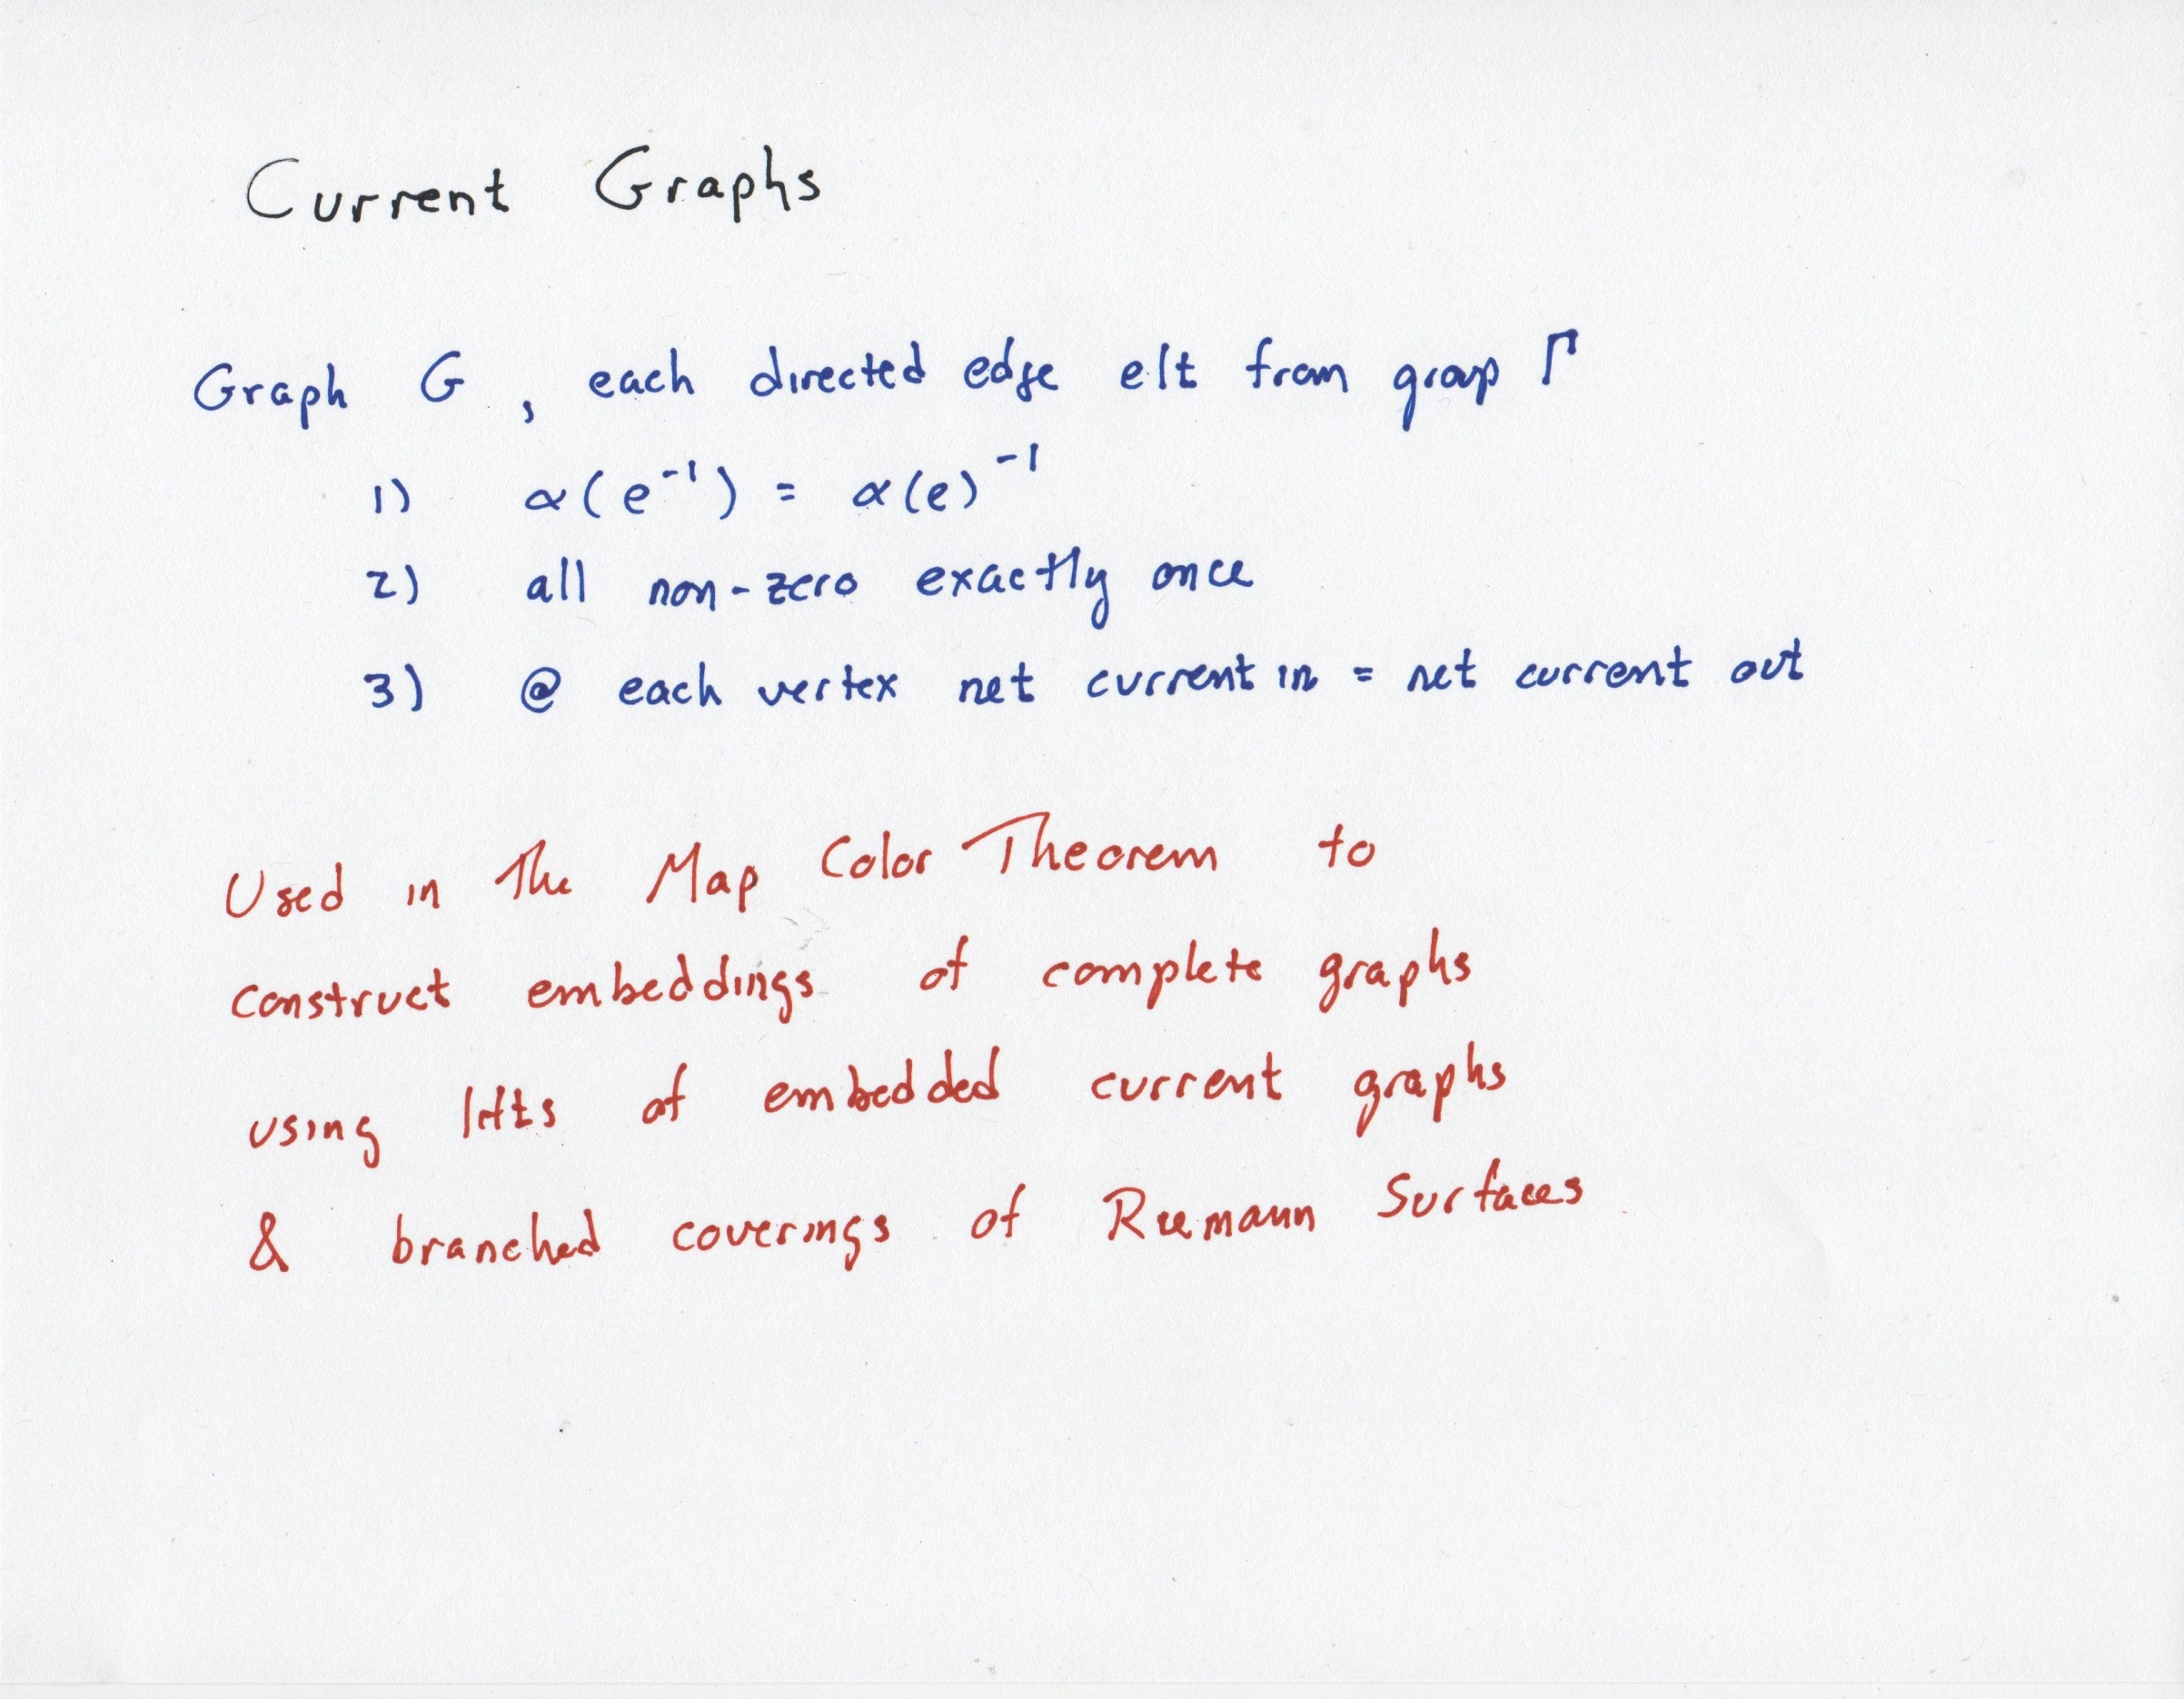 Current Graphs
Graph G , each directed edge elt from group Γ
1) α(e⁻¹) = α(e)⁻¹
2) all non-zero exactly once
3) @ each vertex net current in = net current out
Used in The Map Color Theorem to
construct embeddings of complete graphs
using lifts of embedded current graphs
& branched coverings of Riemann Surfaces